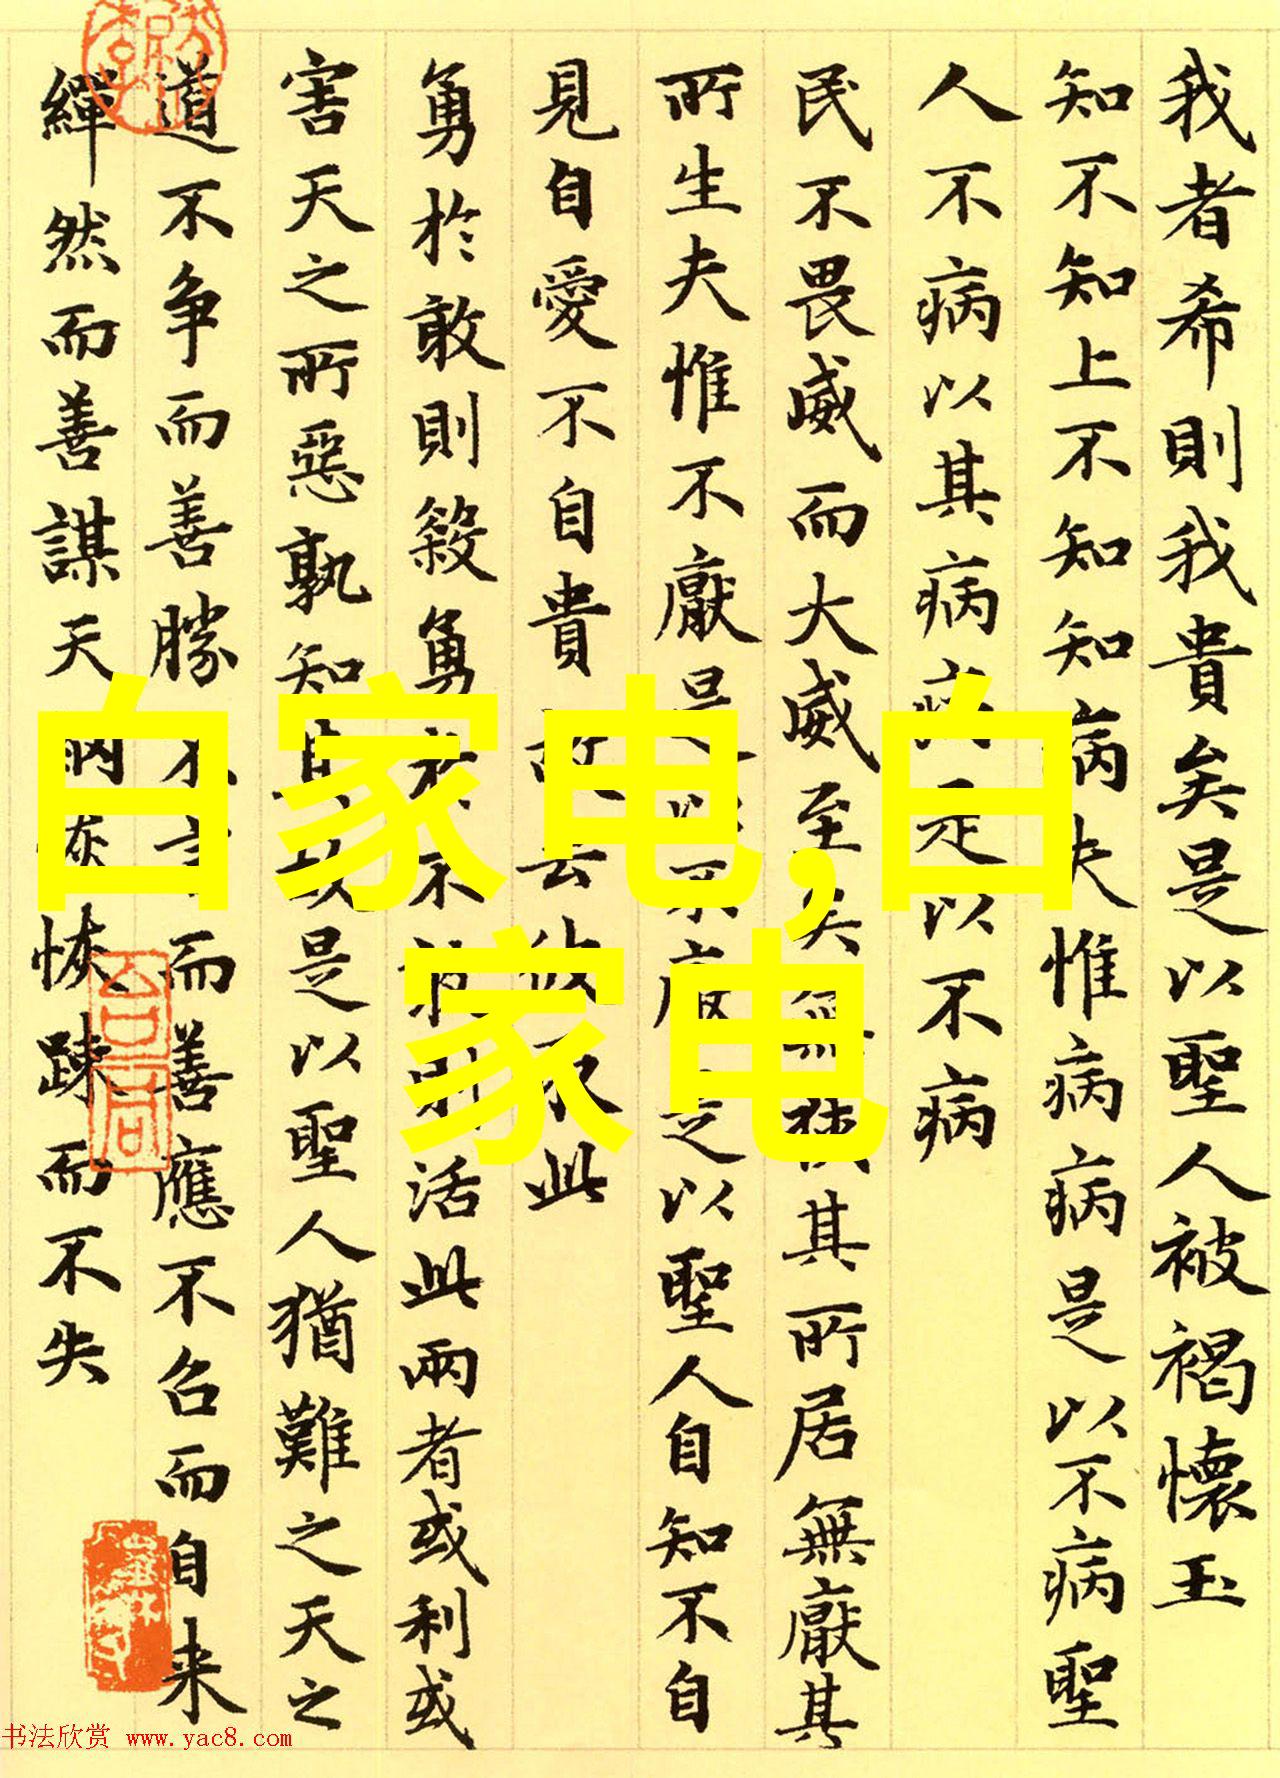 我者希則我貴矣是以聖人被褐懷玉
知不知上不知知病夫惟病病是以不病聖
人不病以其病病是以不病
民不畏威而大威至矣無狹其所居無厭其
所生夫惟不厭是以不厭是以聖人自知不自
見自愛不自貴故去彼取此
勇於敢則殺勇於不敢則活此兩者或利或
害天之所惡孰知其故是以聖人猶難之天之
道不争而善勝不言而善應不召而自来
繟然而善謀天網恢恢踈而不失
白家电,白
家电
书法欣赏 www.yac8.com